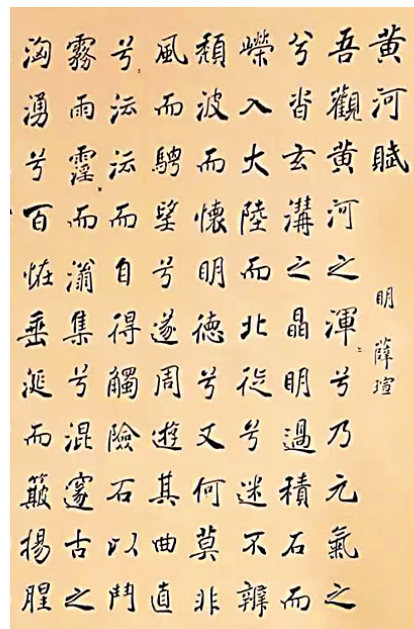 黄河賦
明 薛瑄
吾觀黄河之渾兮乃元氣之
兮沓玄溝之晶明過積石而
嶸入大陸而北徙兮迷不辨
頹波而懷明德兮又何莫非
風而騁望兮遂周遊其曲直
兮沄沄而自得觸險石以鬥
霧雨霪而滃集兮混邃古之
洶湧兮百恠垂涎而簸揚腥